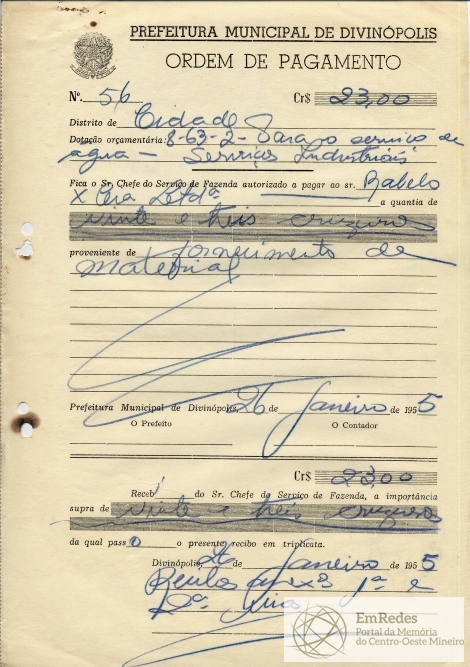 PREFEITURA MUNICIPAL DE DIVINÓPOLIS
ORDEM DE PAGAMENTO
Nº. 56 Cr$ 23,00
Distrito de Cidade
Dotação orçamentária: 8-63-2- Para o serviço de
agua - Serviços Industriais
Fica o Sr. Chefe do Serviço de Fazenda autorizado a pagar ao sr. Rabelo
a quantia de
vinte e treis cruzeiros
proveniente de fornecimento de
material
Prefeitura Municipal de Divinópolis, 26 Janeiro de 1955
O Prefeito O Contador
Cr$ 23,00
Recebi do Sr. Chefe do Serviço de Fazenda, a importância
supra de vinte e treis cruzeiros
da qual passo o presente recibo em triplicata.
Divinópolis, 26 de Janeiro de 1955
1ª e
2ª
EmRedes
Portal da Memória
do Centro-Oeste Mineiro